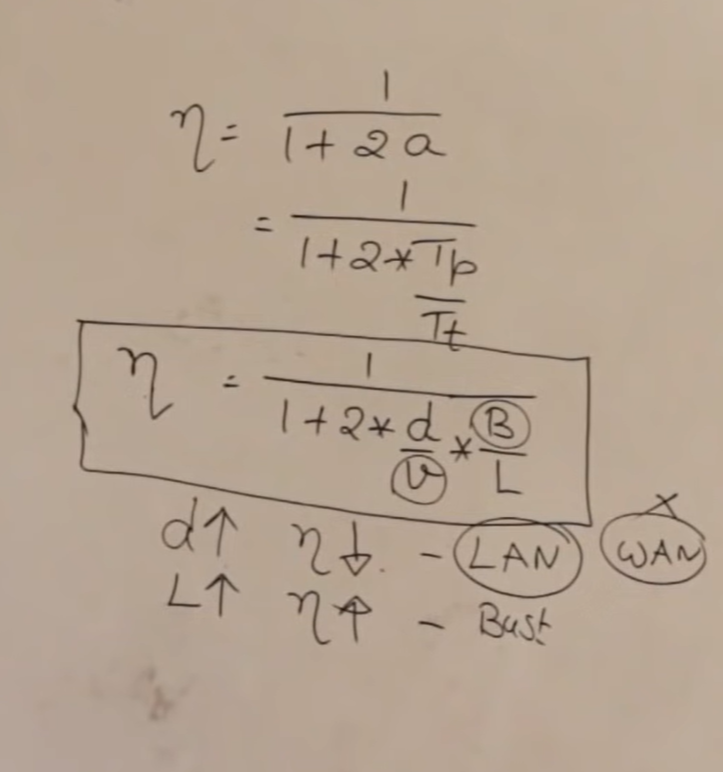 η = 1 / 1 + 2 a
= 1 / 1 + 2 * Tp / Tt
η = 1 / 1 + 2 * d / v * B / L
d↑ η↓ - LAN WAN ×
L↑ η↑ - Bust